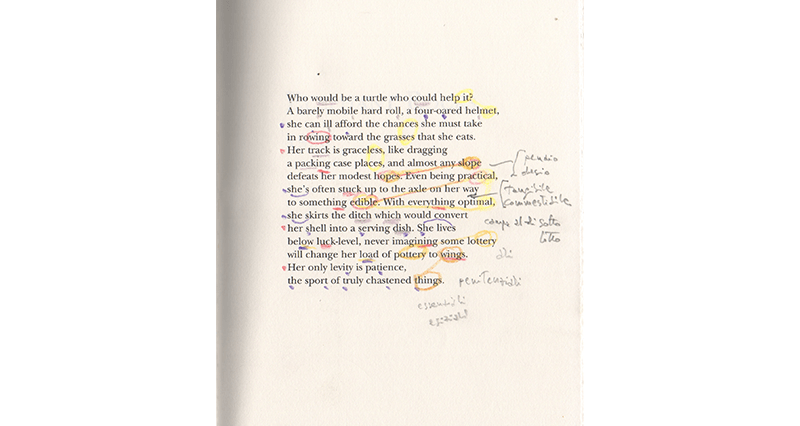 Who would be a turtle who could help it?
A barely mobile hard roll, a four-oared helmet,
she can ill afford the chances she must take
in rowing toward the grasses that she eats.
Her track is graceless, like dragging
a packing case places, and almost any slope
defeats her modest hopes. Even being practical,
she's often stuck up to the axle on her way
to something edible. With everything optimal,
she skirts the ditch which would convert
her shell into a serving dish. She lives
below luck-level, never imagining some lottery
will change her load of pottery to wings.
Her only levity is patience,
the sport of truly chastened things.
pendio
tangibile
commestibile
sotto
ali
penitenziali
essenziali